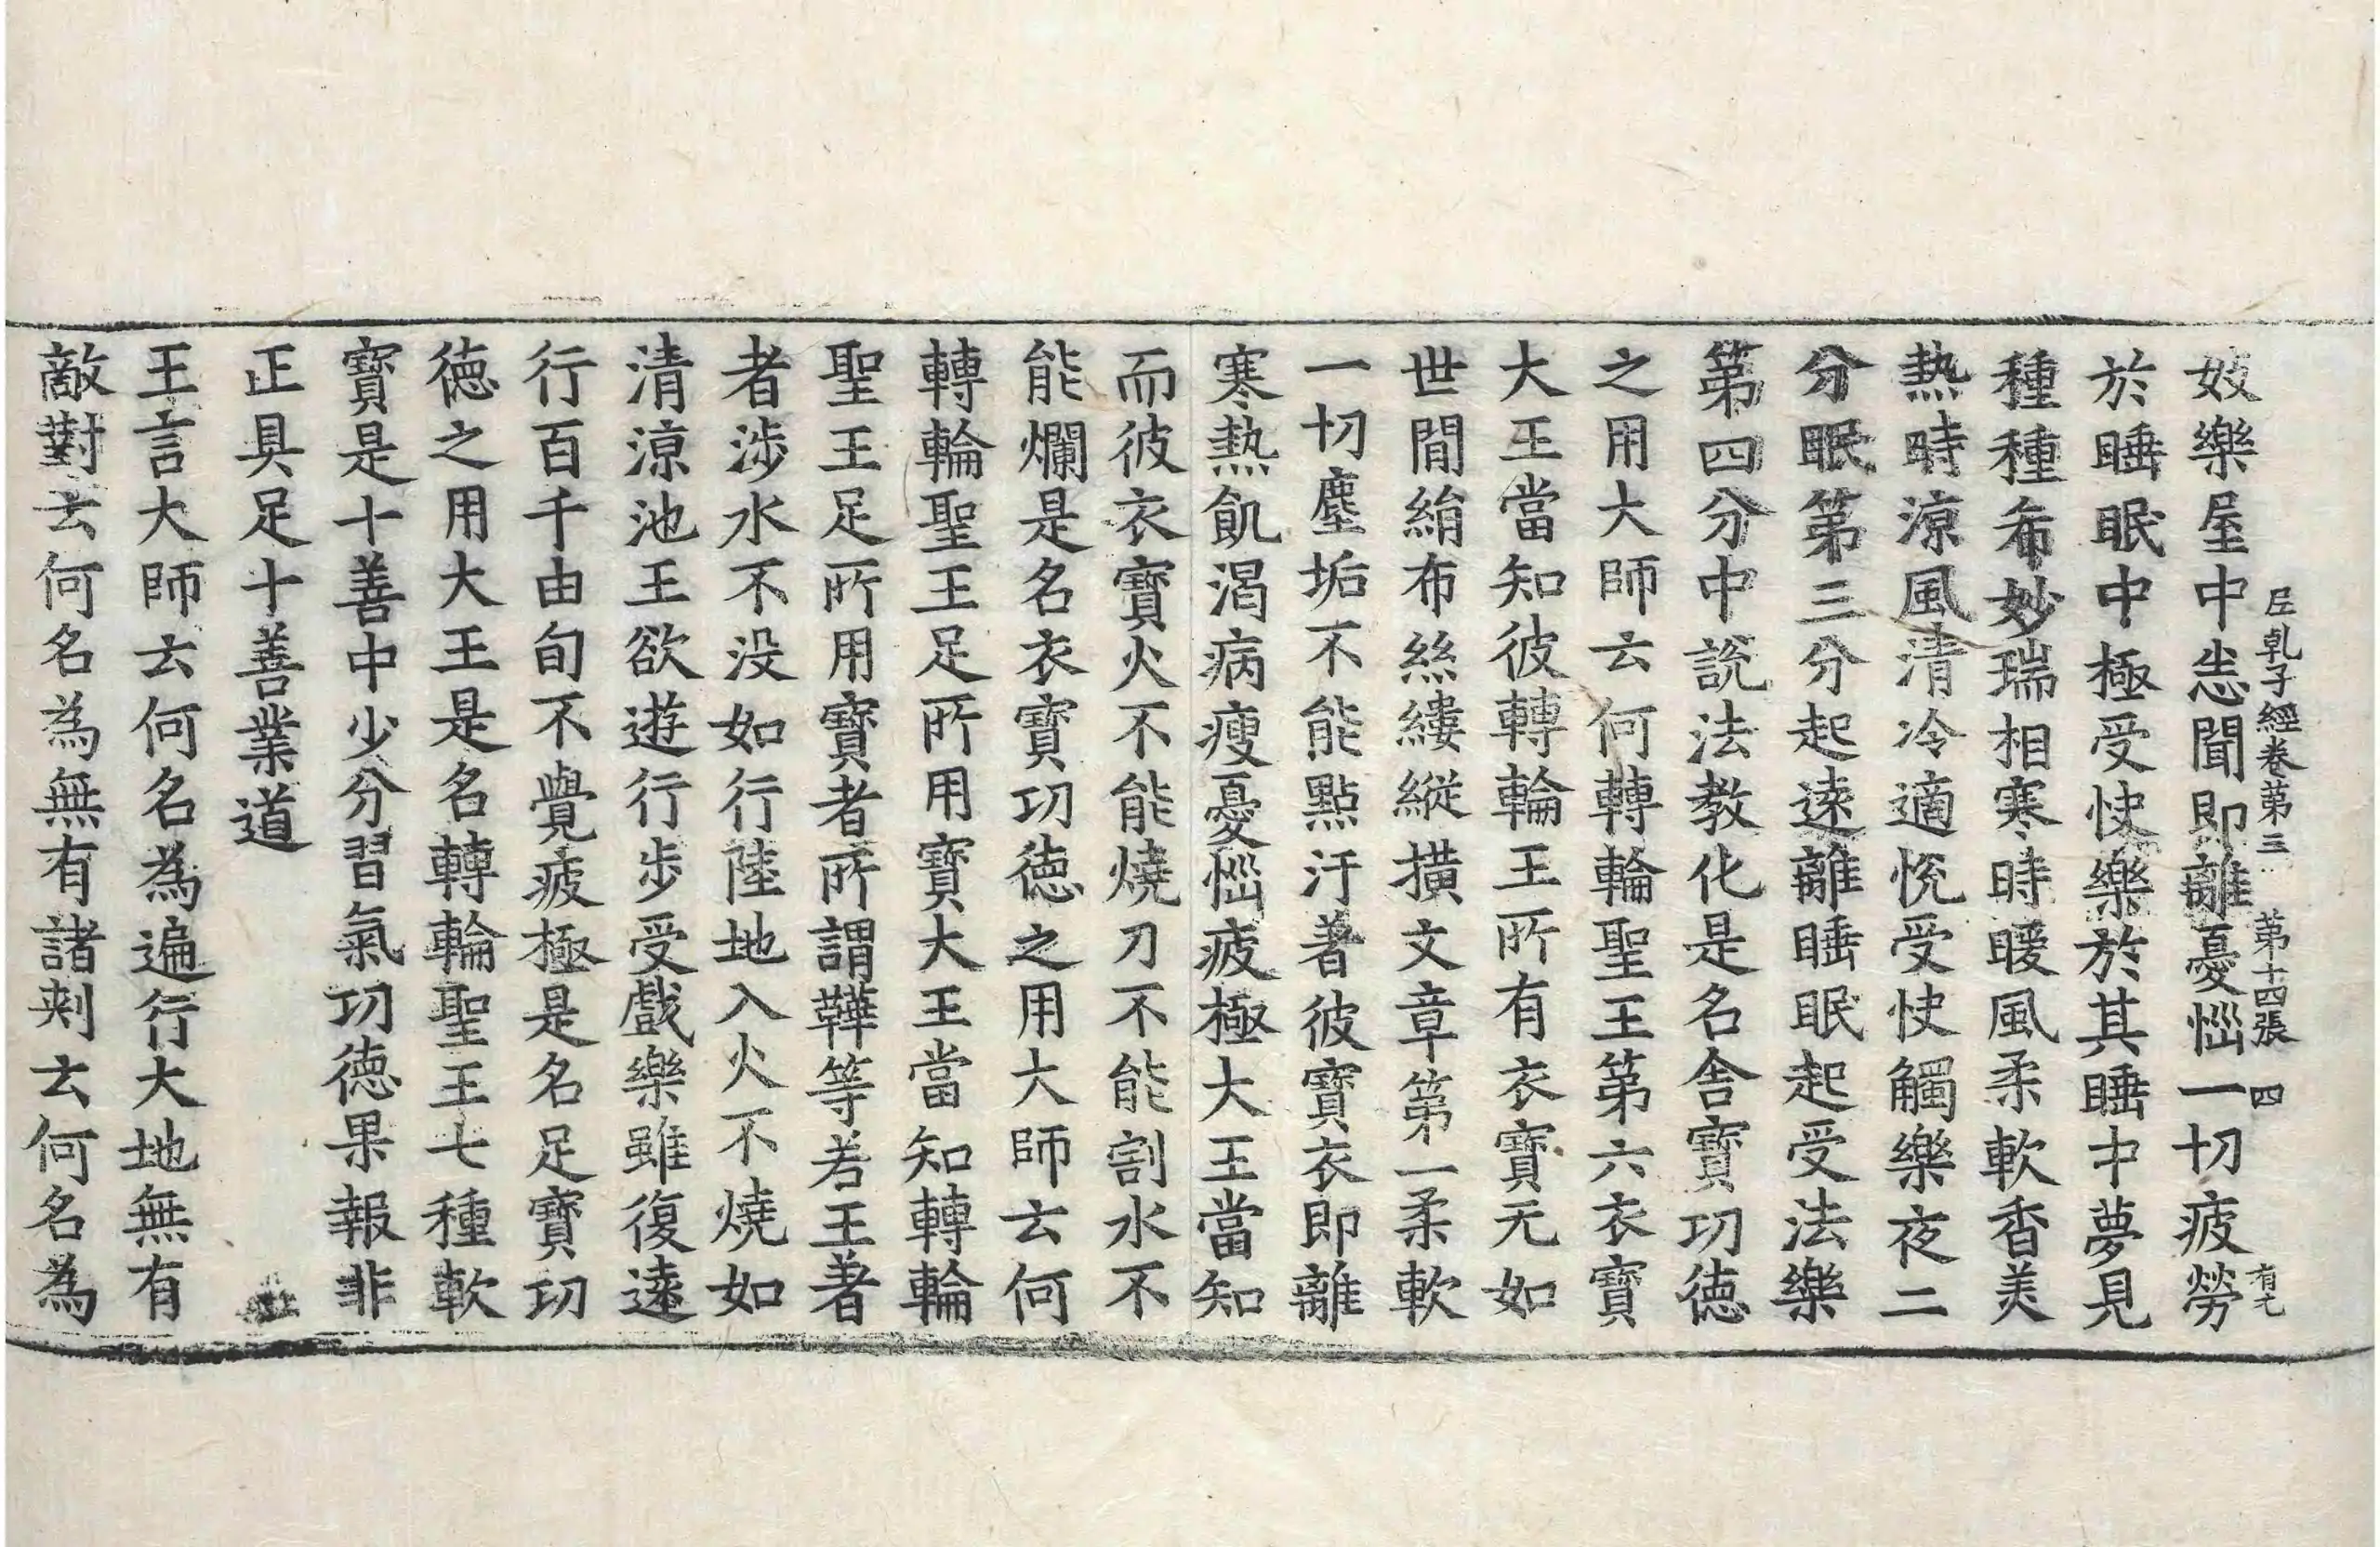 妓樂屋中恙聞即離憂惱一切疲勞
於睡眠中極受快樂於其睡中夢見
種種希妙瑞相寒時暖風柔軟香美
熱時涼風清冷適悅受快觸樂夜二
分眠第三分起遠離睡眠起受法樂
第四分中說法教化是名舍寶功德
之用大師云何轉輪聖王第六衣寶
大王當知彼轉輪王所有衣寶无如
世間絹布絲縷縱撗文章第一柔軟
一切塵垢不能點汙著彼寶衣即離
寒熱飢渴病瘦憂惱疲極大王當知
而彼衣寶火不能燒刀不能割水不
能爛是名衣寶功德之用大師云何
轉輪聖王足所用寶大王當知轉輪
聖王足所用寶者所謂鞾等若王著
者涉水不没如行陸地入火不燒如
清涼池王欲遊行步受戲樂雖復遠
行百千由旬不覺疲極是名足寶功
德之用大王是名轉輪聖王七種軟
寶是十善中少分習氣功德果報非
正具足十善業道
王言大師云何名為遍行大地無有
敵對云何名為無有諸刺云何名為
尼乹子經卷第三 第十四張 四